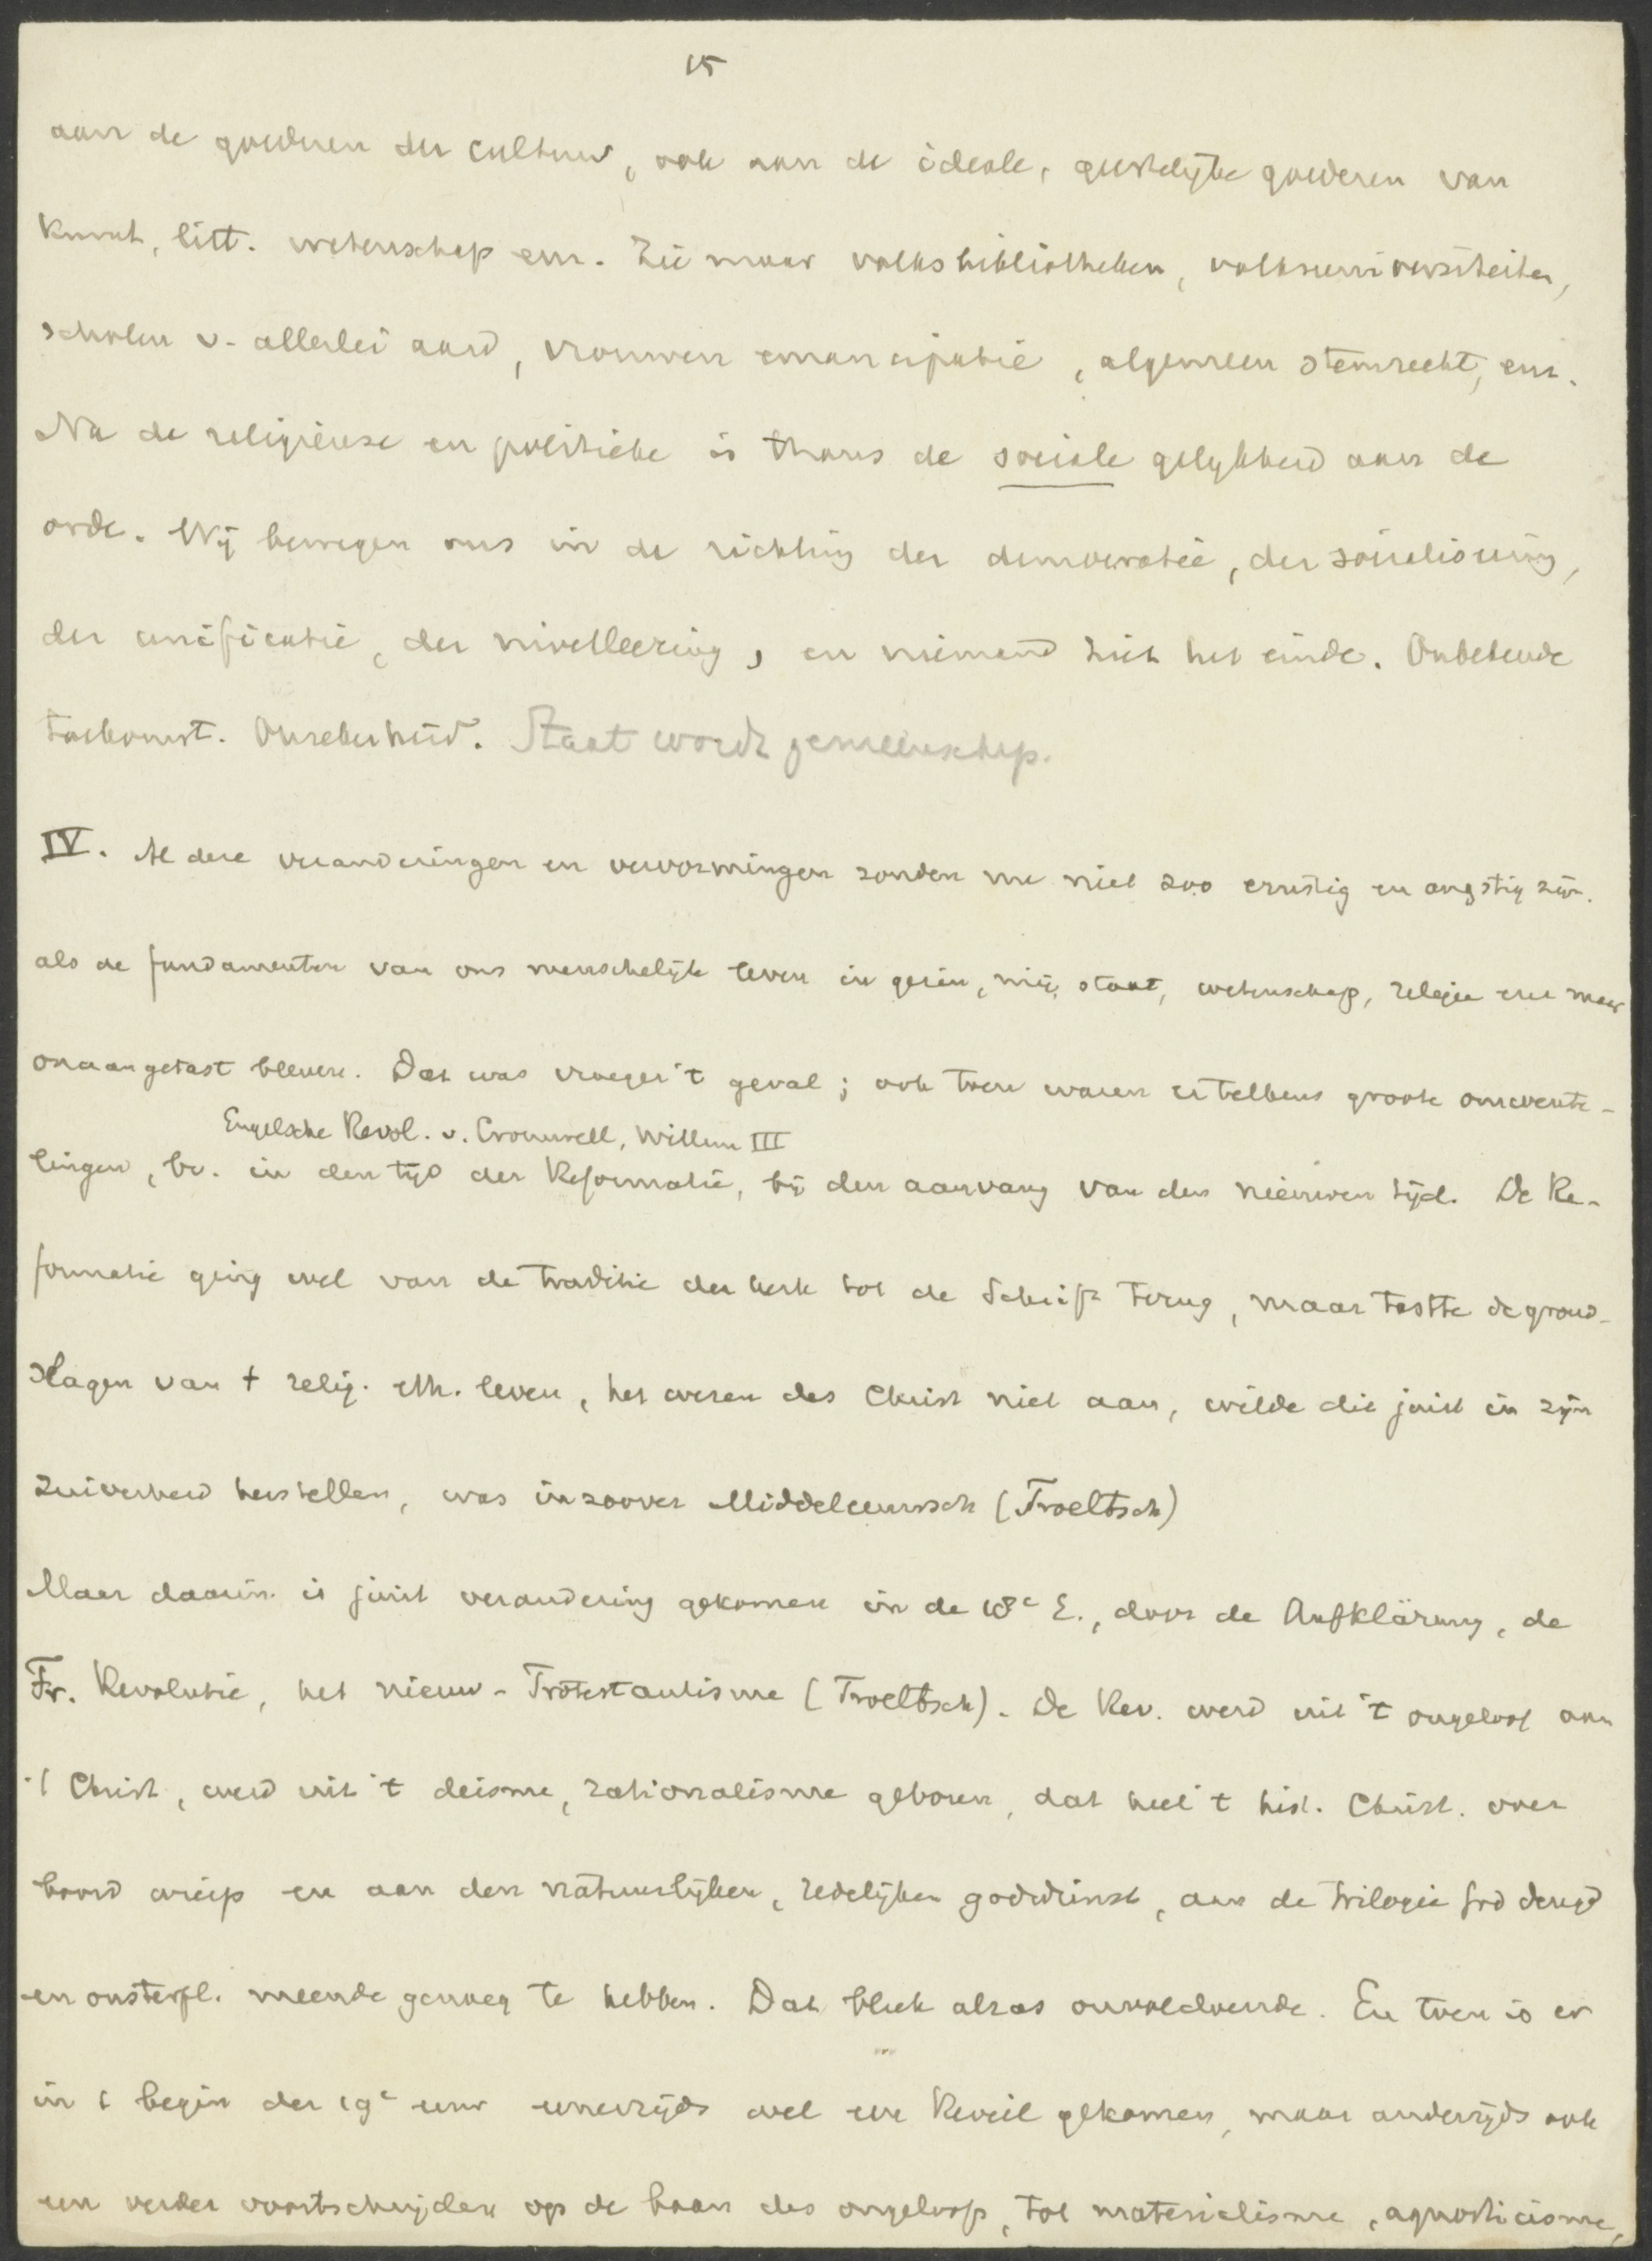 15
aan de goederen der cultuur, ook aan de ideale, geestelijke goederen van
kunst, litt. wetenschap enz. Zie maar volksbibliotheken, volksuniversiteiten,
scholen v. allerlei aard, vrouwenemancipatie, algemeen stemrecht, enz.
Na de religieuse en politieke is thans de sociale gelykheid aan de
orde. Wij bewegen ons in de richting der democratie, der socialisering,
der unificatie, der nivelleering, en niemand ziet het einde. Onbekende
toekomst. Onzekerheid. Staat wordt gemeenschap.
IV. Al deze veranderingen en vervormingen zouden nu niet zoo ernstig en angstig zijn.
als de fundamenten van ons menschelijk leven in gezin, mij, staat, wetenschap, religie enz maar
onaangetast bleven. Dat was vroeger 't geval; ook toen waren er telkens groote omwente-
Engelsche Revol. v. Cromwell, Willem III
lingen, bv. in den tijd der Reformatie, bij den aanvang van den nieuwen tijd. De Re-
formatie ging wel van de traditie der kerk tot de Schrift terug, maar tastte de grond-
slagen van t relig. eth. leven, het wezen des Christ niet aan, wilde die juist in zijn
zuiverheid herstellen, was inzoover Middeleeuwsch (Troeltsch)
Maar daarin is juist verandering gekomen in de 18e E., door de Aufklärung, de
Fr. Revolutie, het nieuw-Protestantisme (Troeltsch). De Rev. werd uit 't ongeloof aan
't Christ, werd uit 't deisme, rationalisme geboren, dat heel 't hist. Christ. over
boord wierp en aan den natuurlijken, redelijken godsdienst, aan de trilogie God deugd
en onsterfl. meende genoeg te hebben. Dat bleek alras onvoldoende. En toen is er
in t begin der 19e eeuw eenerzijds wel een Reveil gekomen, maar anderzijds ook
een verder voortschrijden op de baan des ongeloofs, tot materialisme, agnosticisme,